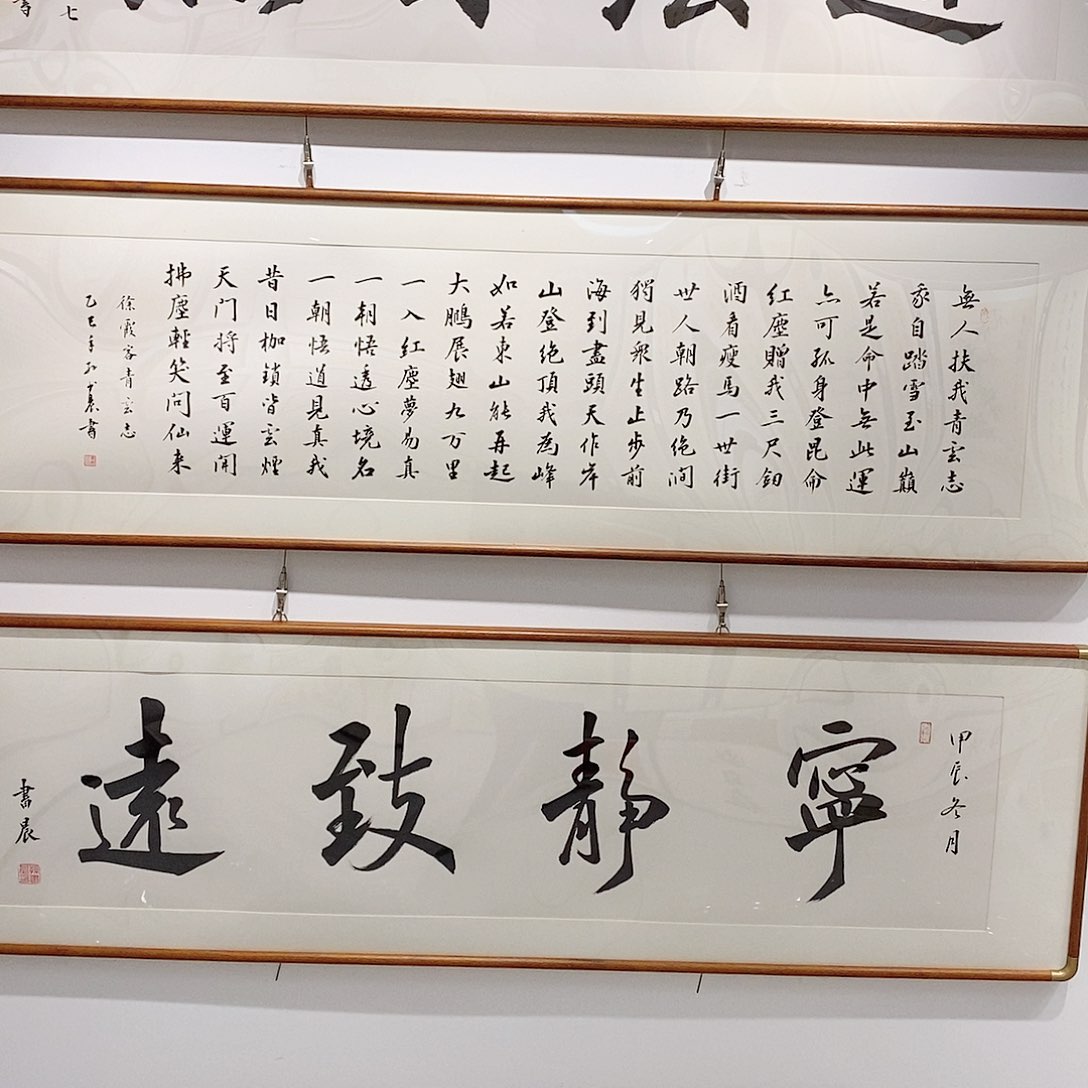 七
無人扶我青雲志
我自踏雪至山巔
若是命中無此運
亦可孤身登昆侖
紅塵贈我三尺釰
酒看瘦馬一世街
世人朝路乃绝澗
獨見眾生止步前
海到盡頭天作岸
山登绝頂我為峰
如若東山能再起
大鵬展翅九万里
一入紅塵夢易真
一朝悟透心境名
一朝悟道見真我
昔日枷鎖皆雲煙
天门将至百運開
拂塵輕笑问仙来
徐霞客青雲志
乙巳年 書
甲辰冬月
寧靜致遠
書晨